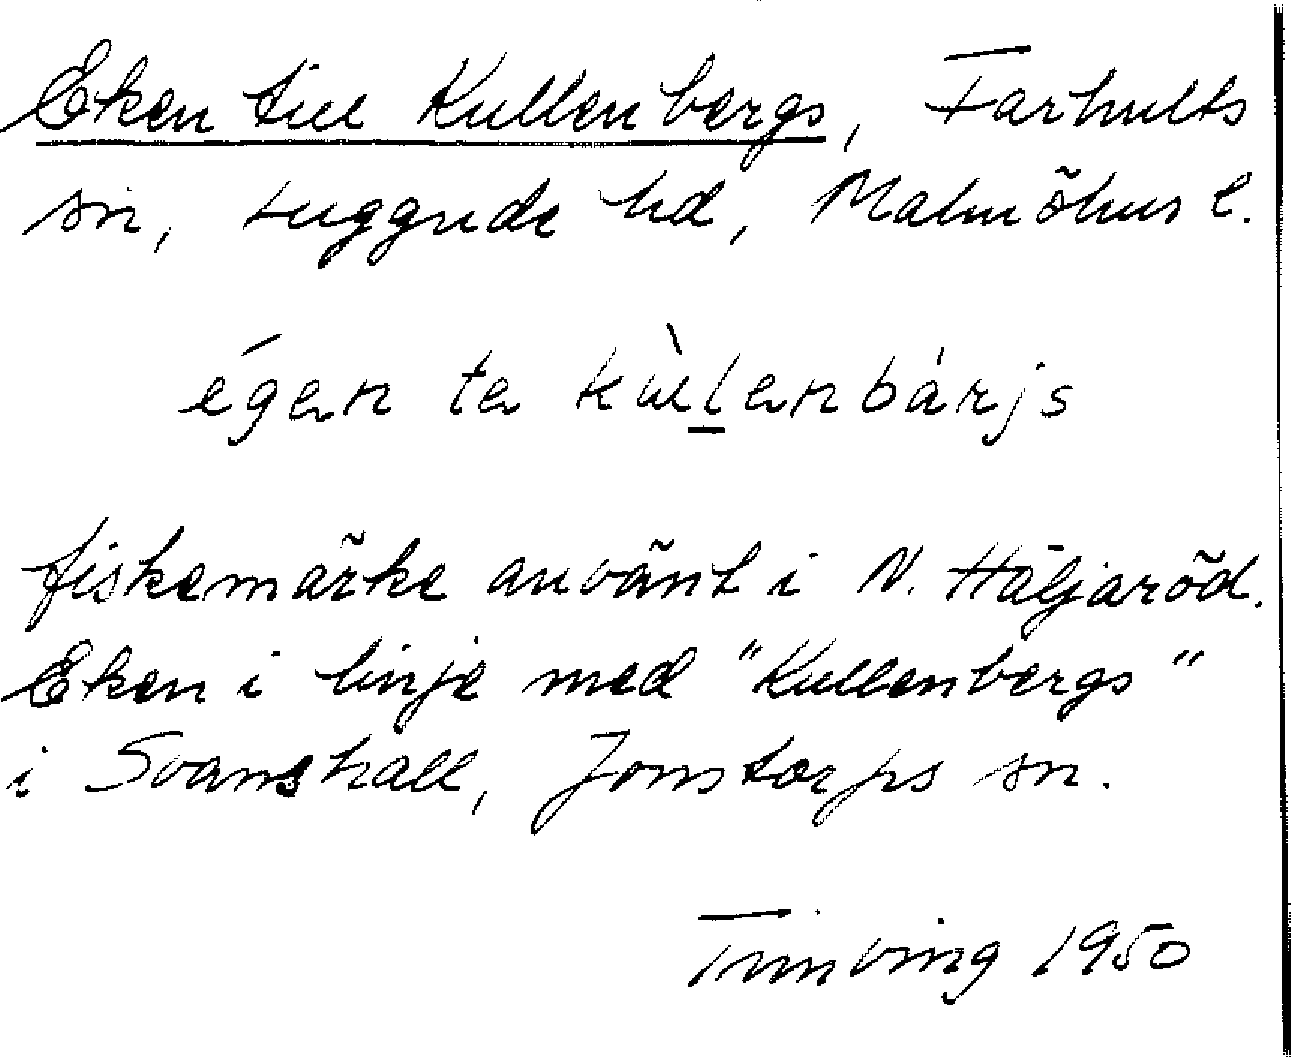 Eken till Kullenbergs, Farhults
sn, Luggude hd, Malmöhus l.
égen te kùl̲enbárjs
fiskemärke använt i N. Häljaröd.
Eken i linje med "Kullenbergs"
i Svanshall, Jonstorps sn.
1950